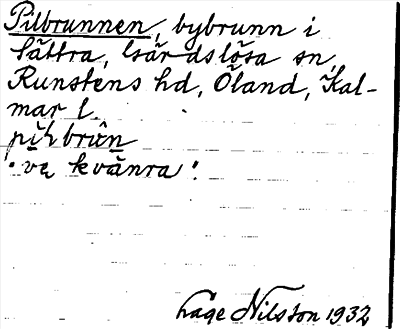 Pilbrunnen, bybrunn i
Sättra, Gärdslösa sn,
Runstens hd, Öland, Kal-
mar l.
pīlbrūn
"vę kvānra".
Lage Nilsson 1932